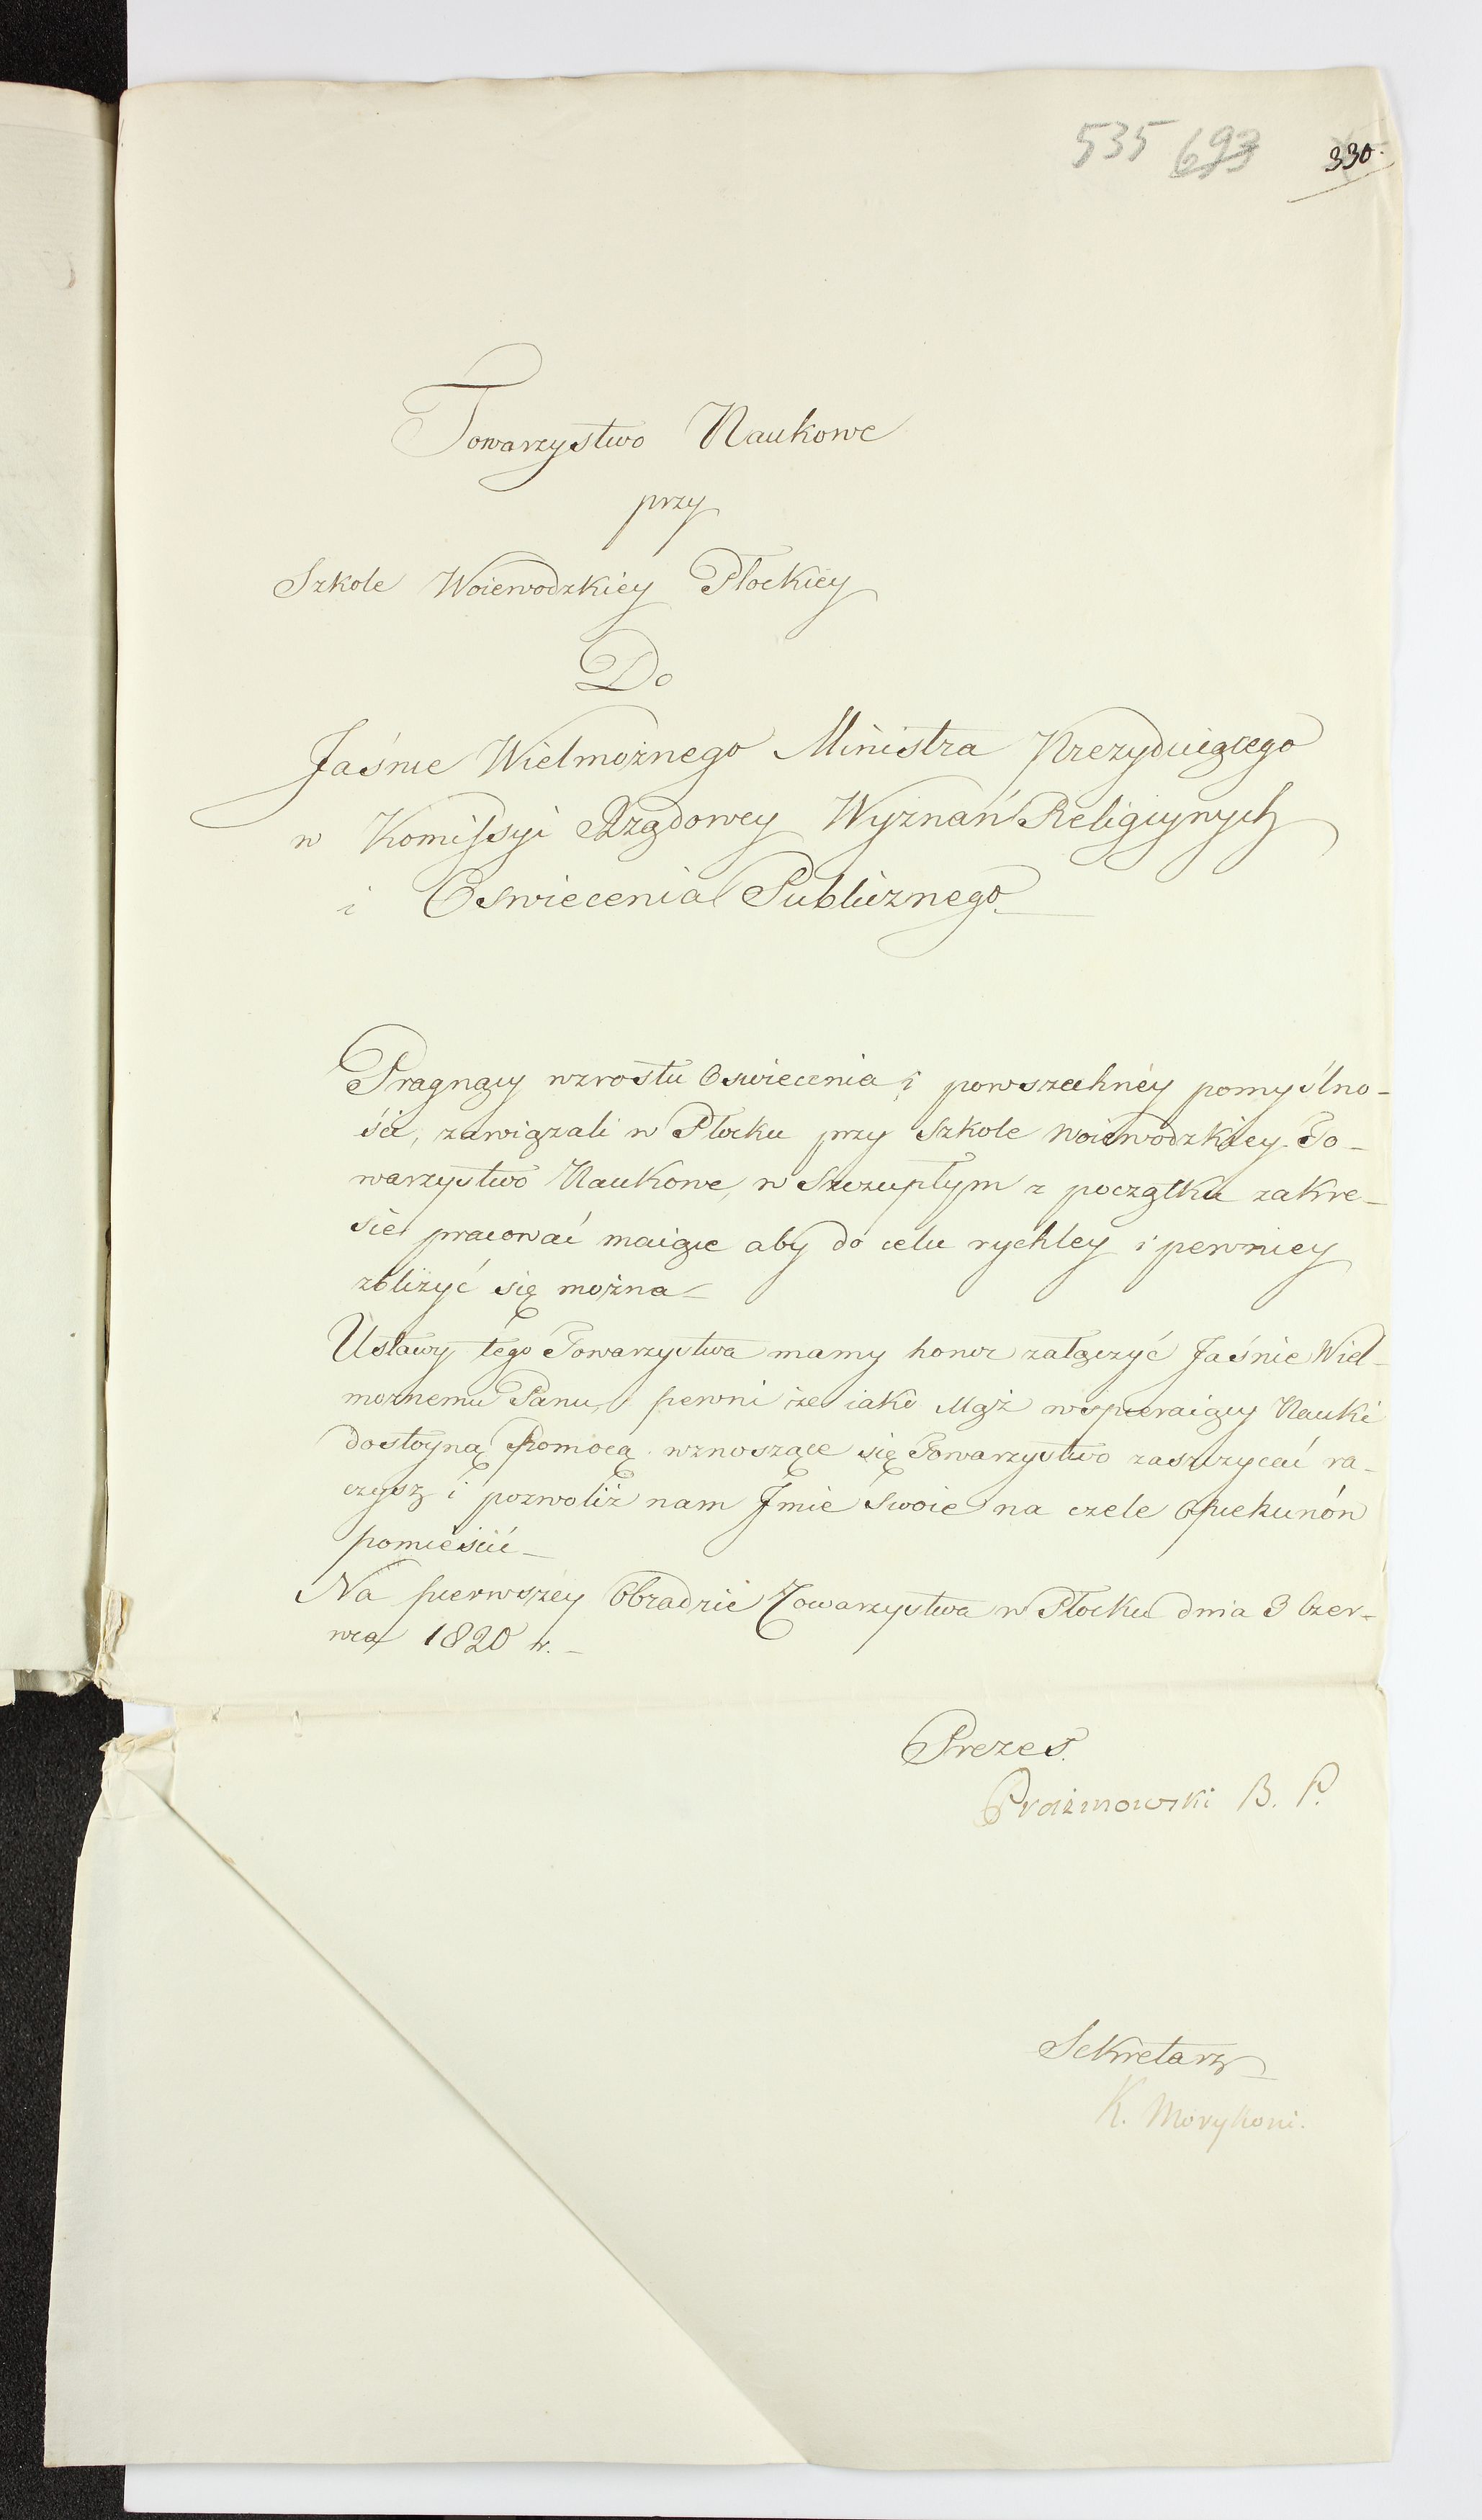 535 693 330.
Towarzystwo Naukowe
przy
Szkole Woiewodzkiey Płockiey
Do
Jaśnie Wielmożnego Ministra Prezyduiącego
w Komissyi Rządowey Wyznań Religiynych
i Oswiecenia Publicznego.
Pragnący wzrostu Oswiecenia i powszechnéy pomyślno-
ści, zawiązali w Płocku przy Szkole woiewodzkiey To-
warzystwo Naukowe, w Szczupłym z początku zakre-
sie pracować maiące aby do celu rychley i pewniey
zbliżyć się można
Ustawy tego Towarzystwa mamy honor załączyć Jaśnie Wiel-
możnemu Panu, pewni że iako Mąż wspieraiący Nauki
dostoyną Pomocą wznoszące się Towarzystwo zaszczycać ra-
czysz i pozwolisz nam Jmie Swoie na czele Opiekunów
pomieścić
Na pierwszéy Obradzie Towarzystwa w Płocku dnia 3 Czer-
wca 1820 r.
Prezes.
Prażmowski B. P.
Sekretarz
K. Morykoni.